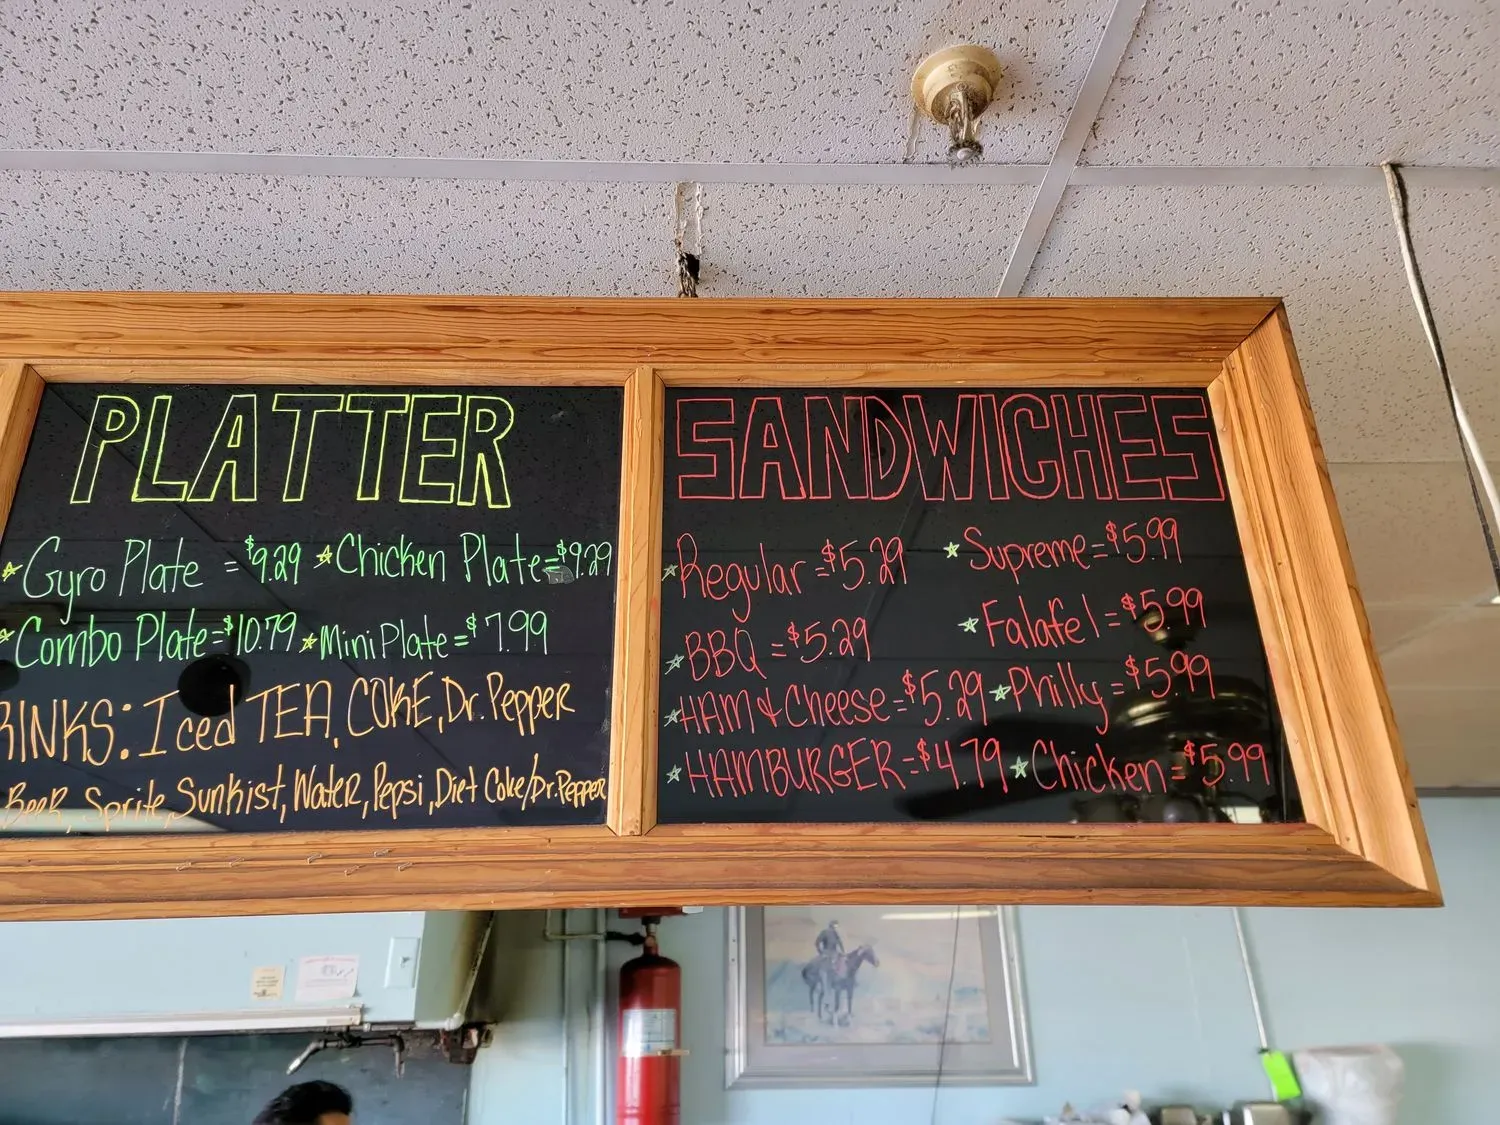 PLATTER
Gyro Plate = $9.29 Chicken Plate = $9.29
Combo Plate = $10.79 Mini Plate = $7.99
RINKS: Iced TEA, COKE, Dr. Pepper
Beer, Sprite, Sunkist, Water, Pepsi, Diet Coke/Dr. Pepper
SANDWICHES
Regular = $5.29 Supreme = $5.99
BBQ = $5.29 Falafel = $5.99
HAM & Cheese = $5.29 Philly = $5.99
HAMBURGER = $4.79 Chicken = $5.99